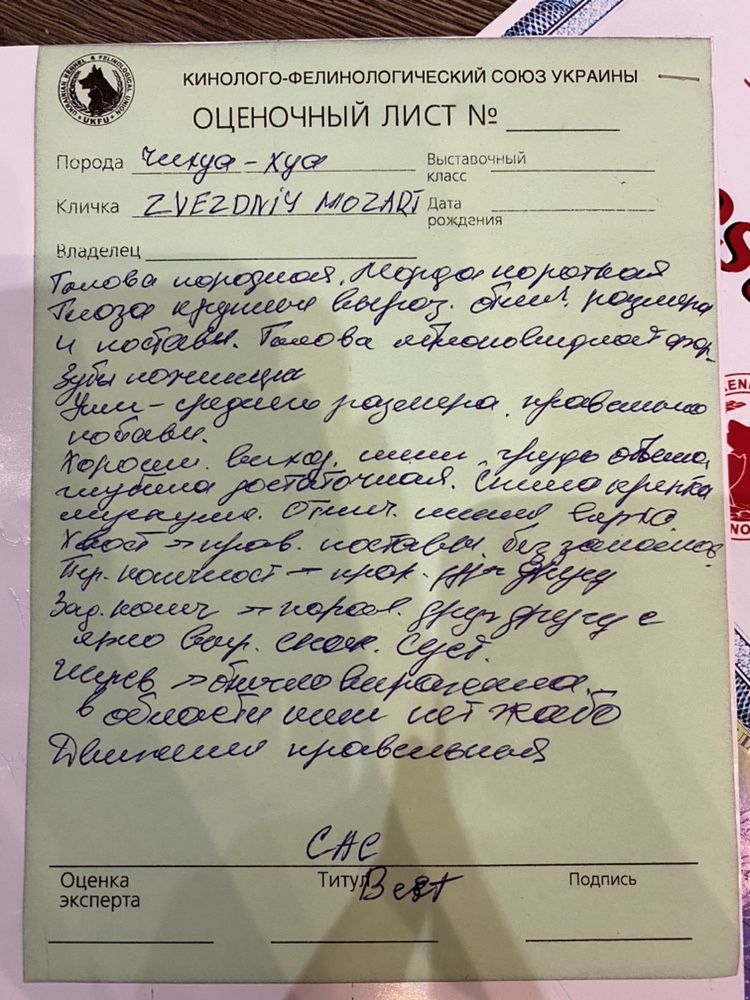 UKRAINIAN KENNEL & FELINOLOGICAL UNION
UKFU
КИНОЛОГО-ФЕЛИНОЛОГИЧЕСКИЙ СОЮЗ УКРАИНЫ
ОЦЕНОЧНЫЙ ЛИСТ №
Порода Чихуа-хуа Выставочный класс
Кличка ZVEZDNIY MOZART Дата рождения
Владелец
Голова породная. Морда короткая
Глаза крупные выраз. отлич. размера
и постави. Голова яблоковидной фор.
Зубы ножницы
Уши - среднего размера, правильно
постави.
Хороши. выход. шии, грудь объемна,
глубина достаточная. Спина крепка
мускули. Отлич. линия верха.
Хвост → прав. поставы, без заломов.
Пер. конечност → прав. друг другу
Зад. конеч → парал. друг другу с
ярко выр. скак. суст.
Шерсть → отлично выражена.
в области шии нет жабо
Движения правильная
САС
Оценка эксперта Титул Best Подпись